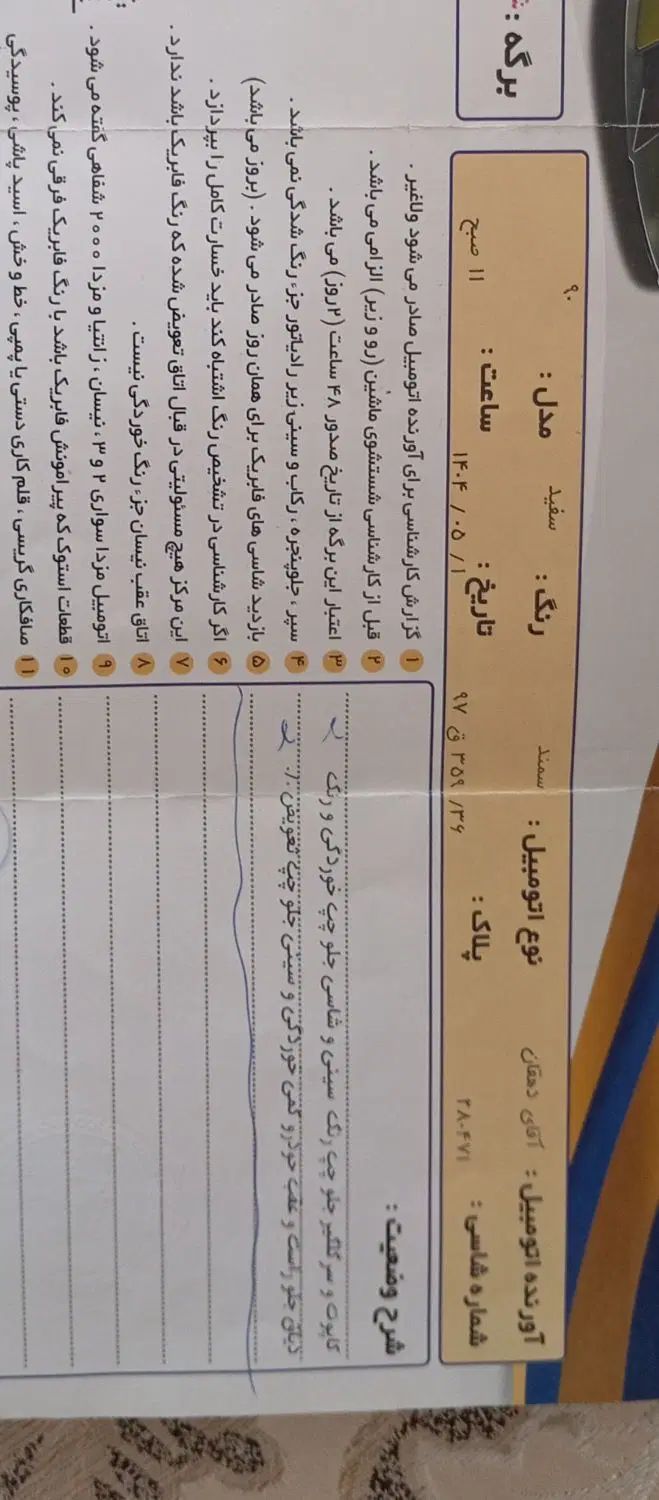 برگه :
آورنده اتومبیل : آقای دهقان نوع اتومبیل : سمند رنگ : سفید مدل : ۹۰
شماره شاسی : ۲۸۰۴۷۱ پلاک : ۳۶/ ۳۵۹ ق ۹۷ تاریخ : ۱/ ۰۵ / ۱۴۰۴ ساعت : ۱۱ صبح
شرح وضعیت :
کاپوت و سرگلگیر جلو چپ رنگ سینی و شاسی جلو چپ خوردگی و رنگ
ذیاق جلو راست و عقب خودرو کمی خوردگی و سینی جلو چپ تعویض ./.
۱ گزارش کارشناسی برای آورنده اتومبیل صادر می شود ولاغیر .
۲ قبل از کارشناسی شستشوی ماشین (رو و زیر) الزامی می باشد .
۳ اعتبار این برگه از تاریخ صدور ۴۸ ساعت (۲روز) می باشد .
۴ سپر ، جلوپنجره ، رکاب و سینی زیر رادیاتور جزء رنگ شدگی نمی باشد .
۵ بازدید شاسی های فابریک برای همان روز صادر می شود . (بروز می باشد)
۶ اگر کارشناسی در تشخیص رنگ اشتباه کند باید خسارت کامل را بپردازد .
۷ این مرکز هیچ مسئولیتی در قبال اتاق تعویض شده که رنگ فابریک باشد ندارد .
۸ اتاق عقب نیسان جزء رنگ خوردگی نیست .
۹ اتومبیل مزدا سواری ۲ و ۳ ، نیسان ، زانتیا و مزدا ۲۰۰۰ شفاهی گفته می شود .
۱۰ قطعات استوک که پیرامونش فابریک باشد با رنگ فابریک فرقی نمی کند .
۱۱ صافکاری گریسی ، قلم کاری دستی یا پمپی ، خط و خش ، اسید پاشی ، پوسیدگی